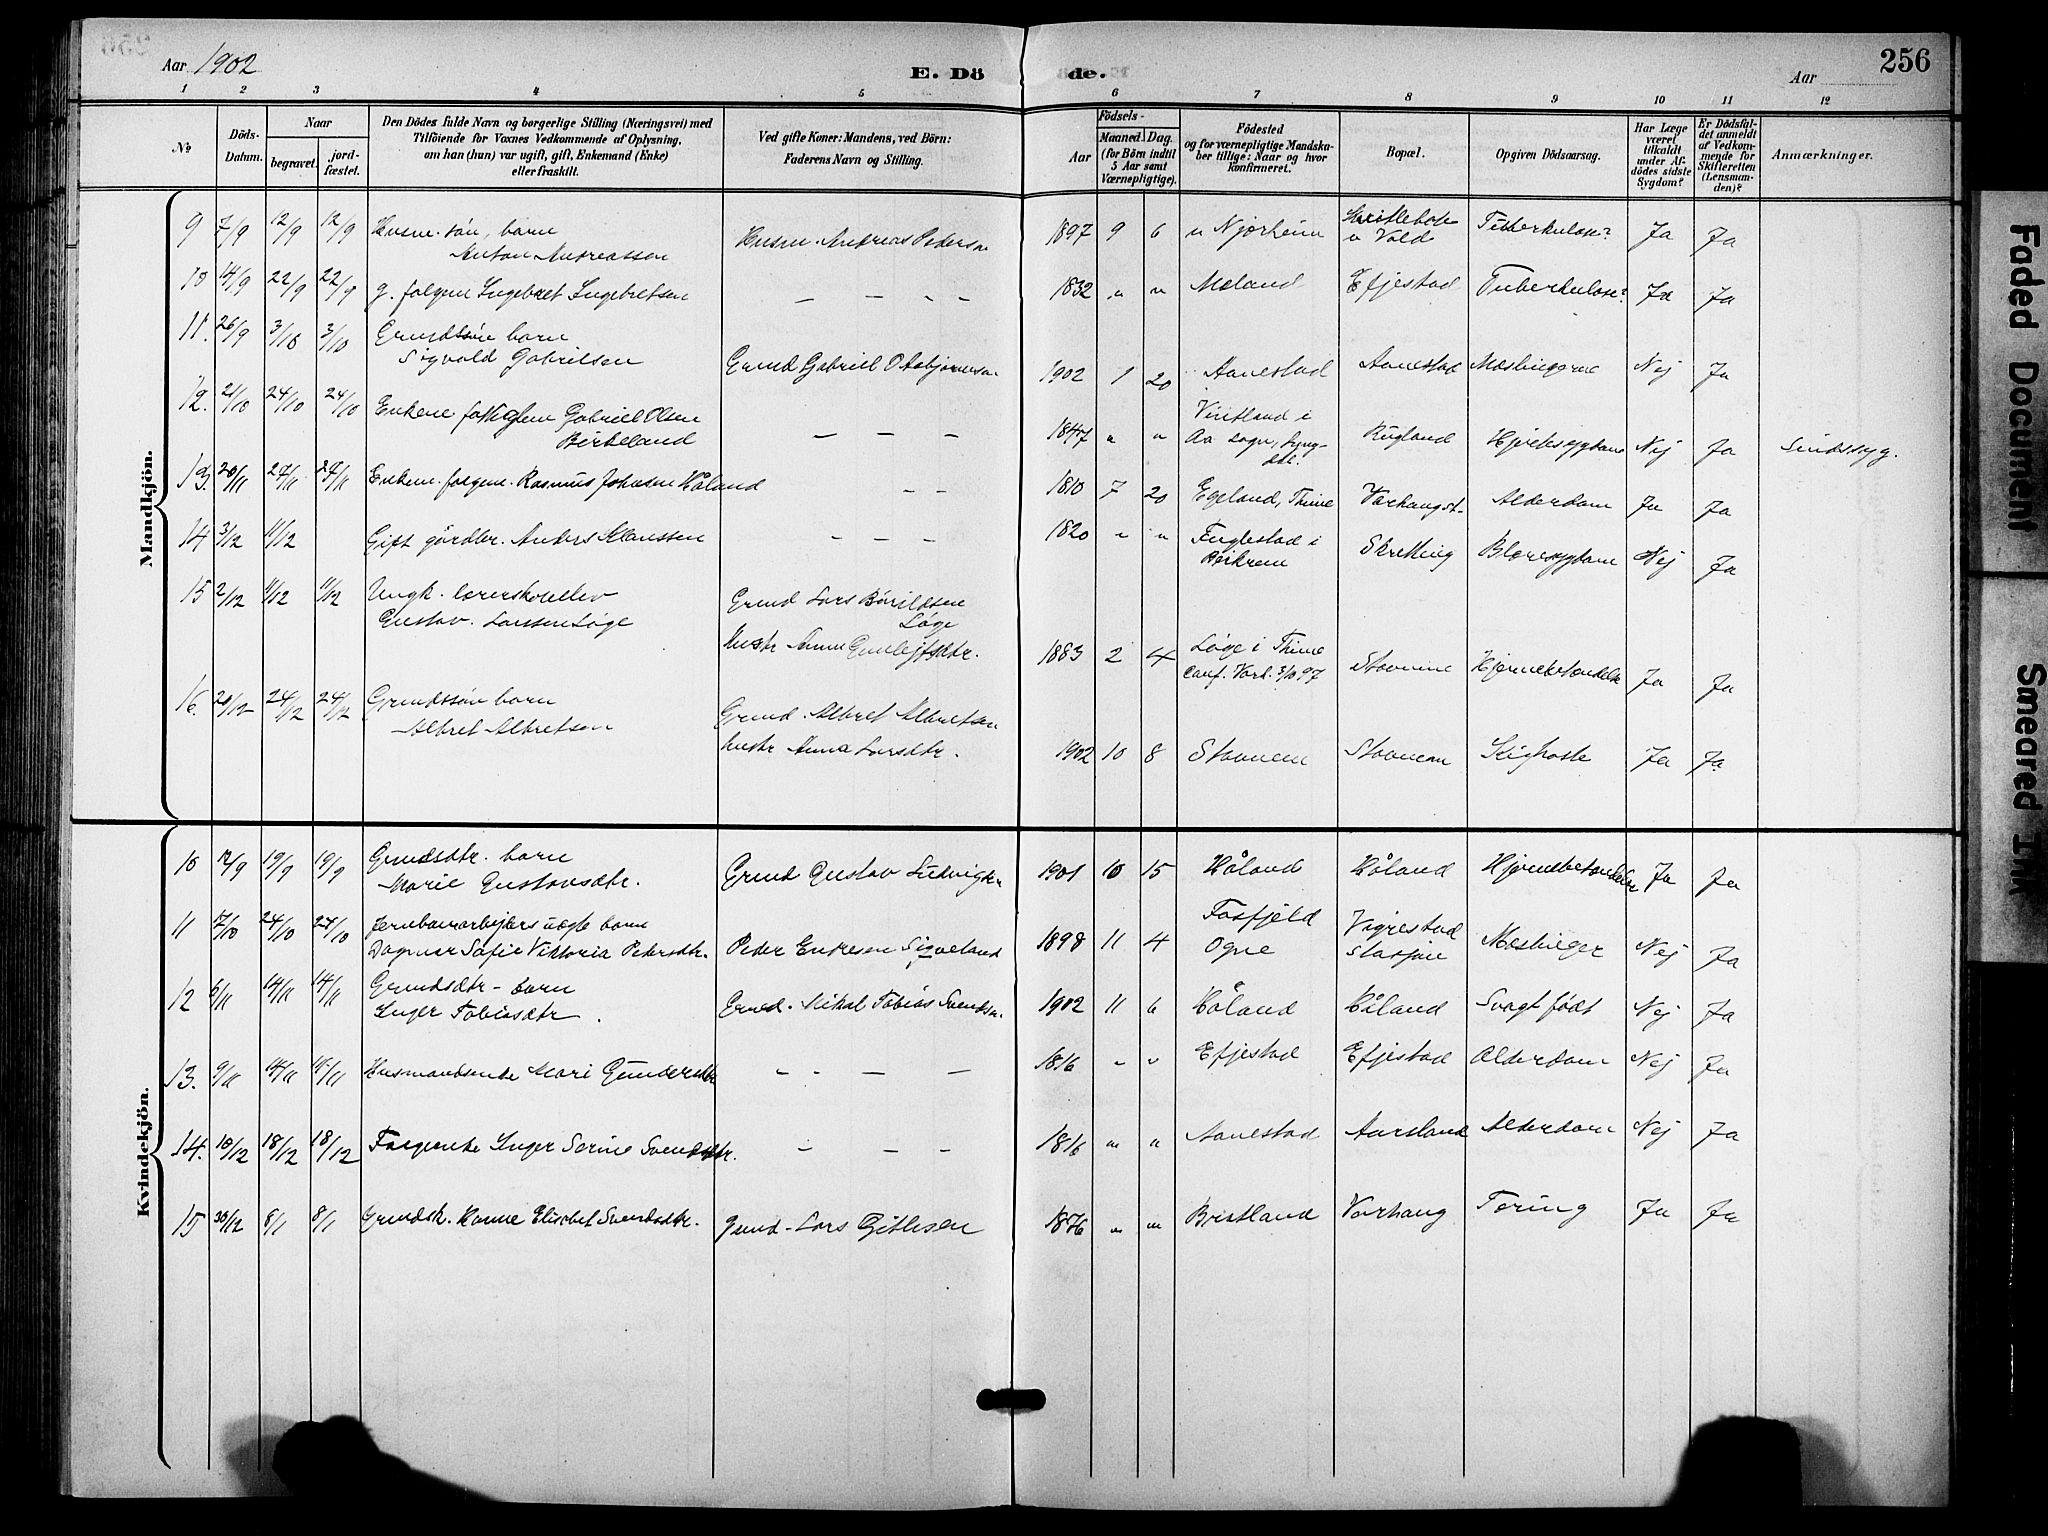 256
Aar 1902
E. Dö de.
Aar
1 2 3 4 5 6 7 8 9 10 11 12
№
Döds-Datum.
Naar
begravet.
jord-fæstet.
Den Dödes fulde Navn og borgerlige Stilling (Næringsvei) med
Tilföiende for Voxnes Vedkommende af Oplysning,
om han (hun) var ugift, gift, Enkemand (Enke)
eller fraskilt.
Ved gifte Koner: Mandens, ved Börn:
Faderens Navn og Stilling.
Födsels-
Aar
Maaned. Dag.
(for Börn indtil
5 Aar samt
Værnepligtige).
Födested
og for værnepligtige Mandska-
ber tillige: Naar og hvor
konfirmeret.
Bopæl.
Opgiven Dödsaarsag.
Har Læge
været
tilkaldt
under Af-
dödes sidste
Sygdom?
Er Dödsfal-
det anmeldt
af Vedkom-
mende for
Skifteretten
(Lensman-
den)?
Anmærkninger.
Mandkjön.
9 7/9 12/9 12/9 Husm. sön, barn
Anton Andreassen Husm. Andreas Pedersen 1897 9 6 u Njorheim u Vold Tuberkulose? Ja Ja
10 14/9 22/9 22/9 g. folgem Ingebret Ingebretsen — — — — 1832 " " Moland Efjestad Tuberkulose? Ja Ja
11. 26/9 3/10 3/10 Grundssön barn
Sigvald Gabrielsen Grund Gabriel O Asbjørnsen 1902 1 20 Aanestad Aanestad Meslingerne Nej Ja
12. 21/10 24/10 24/10 Enkem. Gabriel Olsen
Birkeland — — — 1847 " " i
Aa sogn, Lyng-
dal. Rugland Hjertesygdom Nej Ja Sindssyg.
13. 20/11 27/11 27/11 Enkem. folgem. Rasmus Johnsen Håland — — 1810 7 20 Egeland, Thime Varhaugst. Alderdom Ja Ja
14 3/12 11/12 Gift gårdbr. Anders Klaussen — — — 1820 " " Fuglestad i
Bjerkrem Skretting Blæresygdom Nej Ja
15 2/12 11/12 11/12 Ungk. lærerskoleelev
Gustav Larssen Løge Grund Lars Bårildsen
Løge
hustr Anna Gunleifsdtr. 1883 2 4 Løge i Thime
Conf. Varh. 3/10 97 Stavnem Hjernebetændelse Ja Ja
16. 20/12 24/12 24/12 Grundssön barn
Albret Albretsen Grund. Albret Albretsen
hustr Anna Larsdtr. 1902 10 8 Stavnem Stavnem Kighoste Ja Ja
Kvindekjön.
10 12/9 19/9 19/9 Grundsdtr. barn
Marie Gustavsdtr. Grund Gustav Ludvigsen 1901 10 15 Håland Håland Hjernebetændelse Ja Ja
11 17/10 24/10 24/10 Jernbanearbejders uægte barn
Dagmar Sofie Viktoria Pedersdtr. Peder Endresen Sigveland 1898 11 4 Fosfjeld
Ogne Vigrestad
Stasjon Meslinger Nej Ja
12 6/11 14/11 14/11 Grundsdtr - barn
Inger Tobiasdtr. Grund. Mikal Tobias Svendsen 1902 11 6 Håland Håland Svagt født Nej Ja
13. 9/11 15/11 15/11 Husmandsenke Mari Gundersdtr — — — — 1816 " " Efjestad Efjestad Alderdom Nej Ja
14. 10/12 18/12 18/12 Folgeenke Inger Serine Svendsdtr. — — — 1816 " " Aanestad Aarsland Alderdom Nej Ja
15 30/12 8/1 8/1 Grundsk. Hanne Elisabet Svendsdtr. Grund- Lars Gitlesen 1876 " " Bristland Varhaug Tæring Ja Ja
Faded Document
Smeared Ink